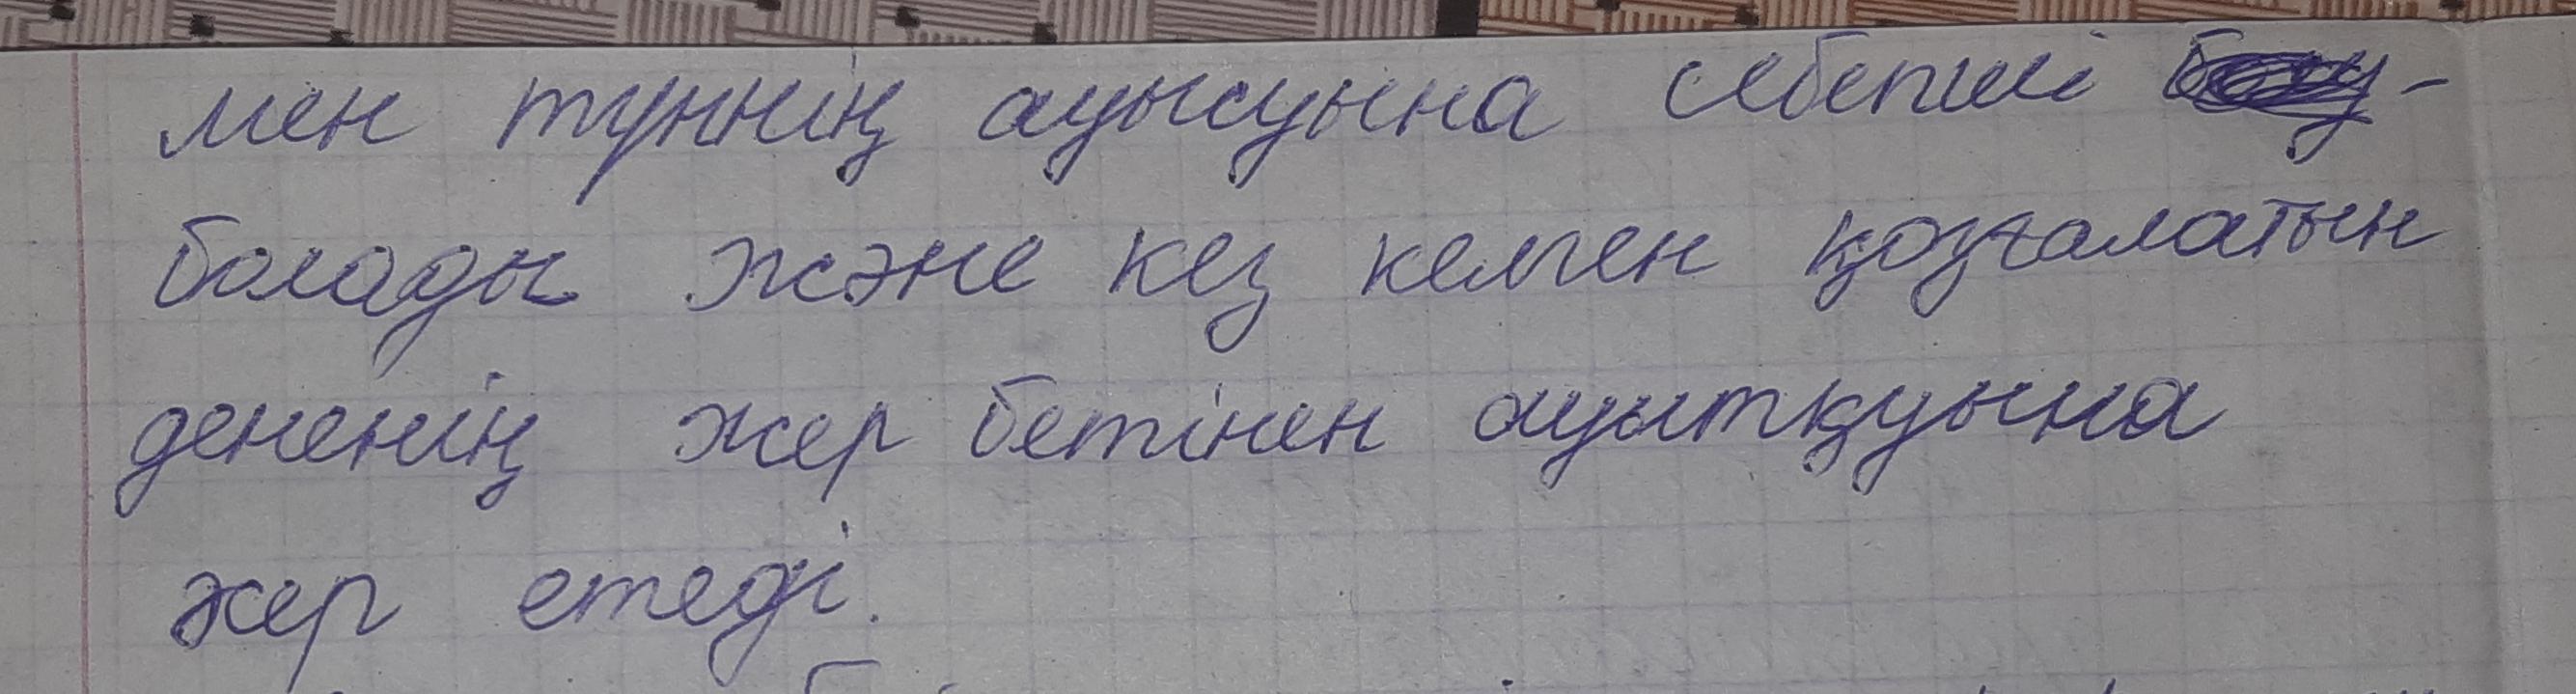 мен түннің ауысуына себепші
болады және кез келген қозғалатын
дененің жер бетінен ауытқуына
әсер етеді.